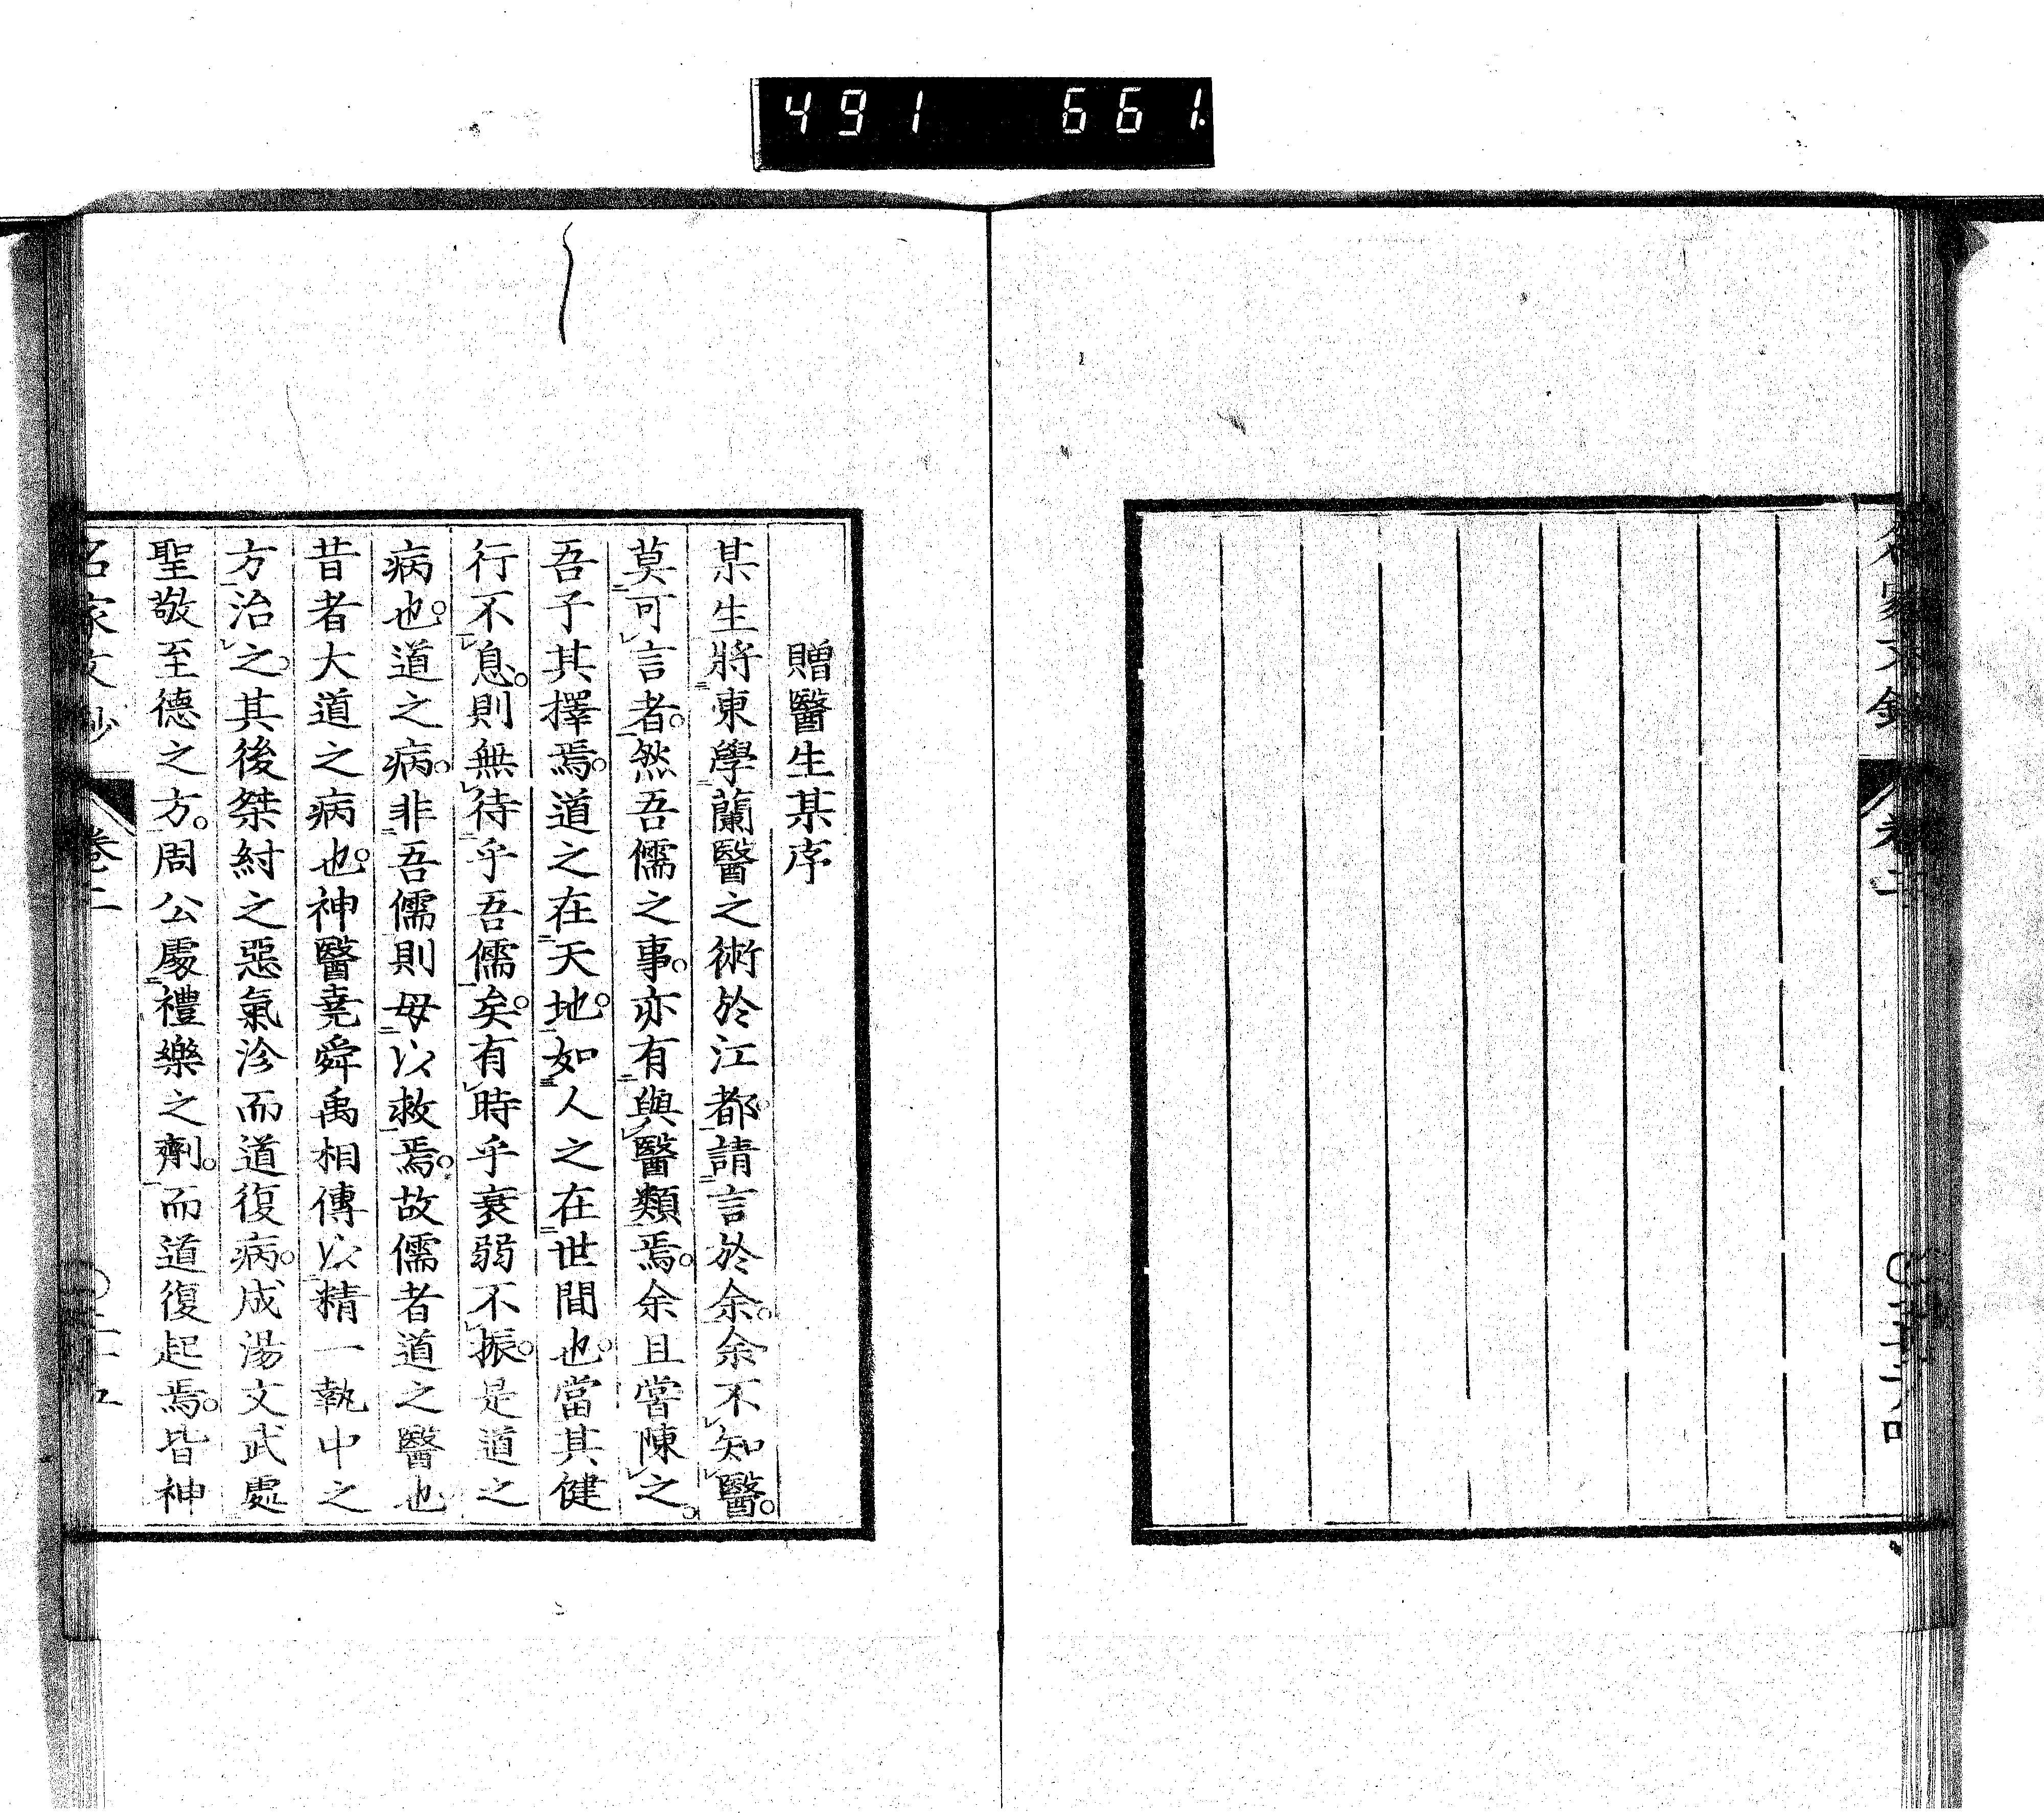 491 661
贈醫生某序
某生將東學蘭醫之術於江都請言於余余不知醫
莫可言者然吾儒之事亦有與醫類焉余且嘗陳之
吾子其擇焉道之在天地如人之在世間也當其健
行不息則無待乎吾儒矣有時乎衰弱不振是道之
病也道之病非吾儒則毋以救焉故儒者道之醫也
昔者大道之病也神醫堯舜禹相傳以精一執中之
方治之其後桀紂之惡氣沴而道復病成湯文武處
聖敬至德之方周公處禮樂之劑而道復起焉皆神
名家文鈔 卷二